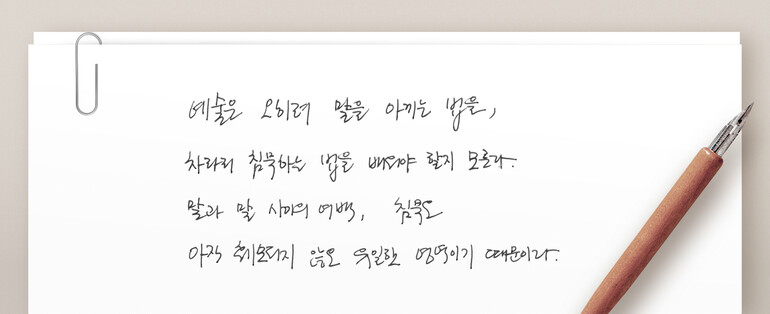 예술은 오히려 말을 아끼는 법을,
차라리 침묵하는 법을 배워야 할지 모른다.
말과 말 사이의 여백, 침묵은
아직 훼손되지 않은 유일한 영역이기 때문이다.